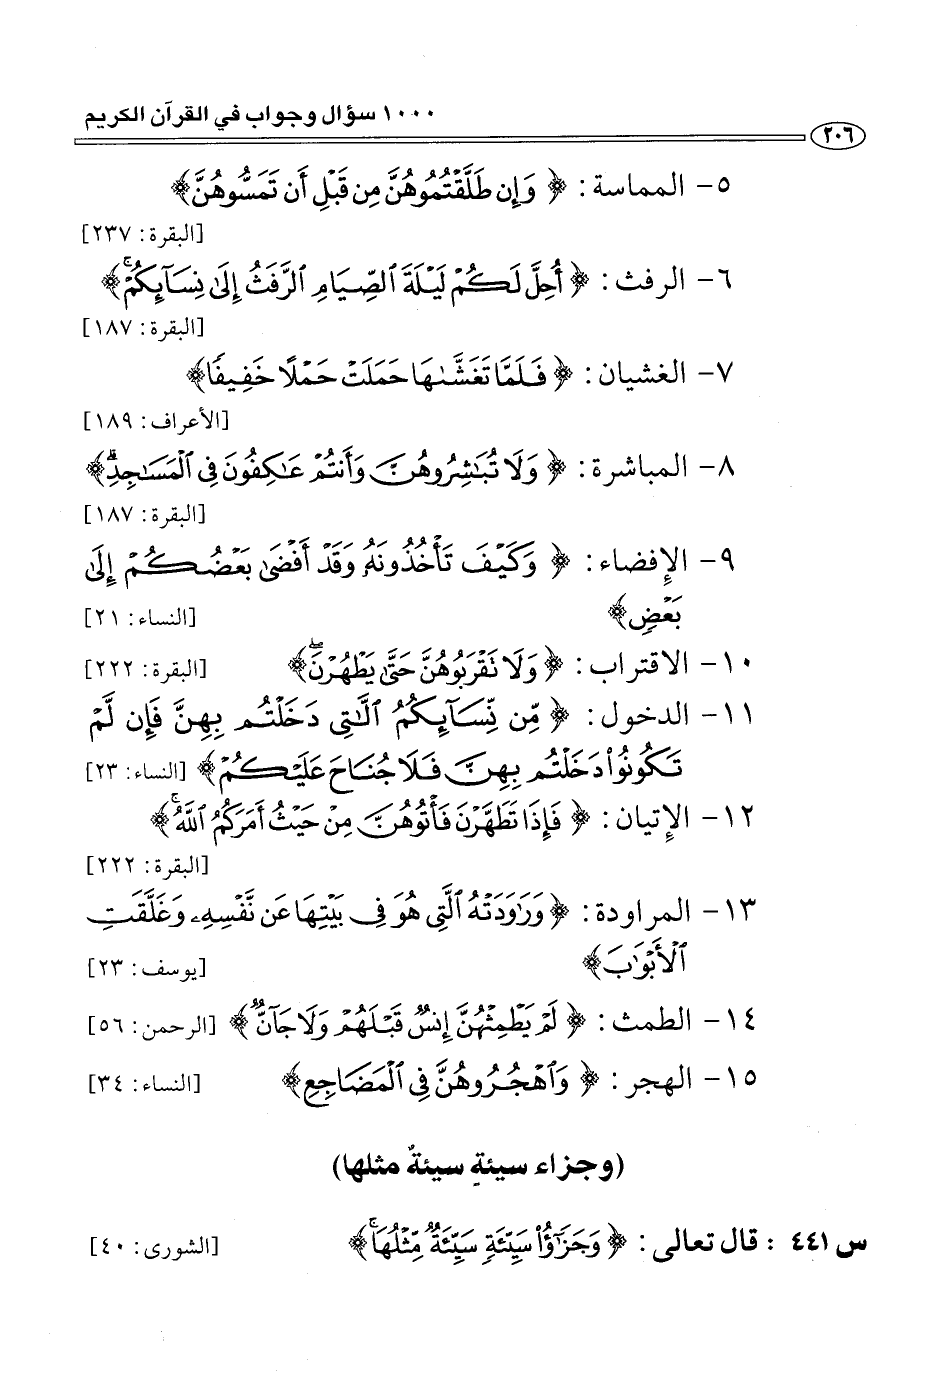 ١٠٠٠ سؤال وجواب في القرآن الكريم
٢٠٦
٥- المماسة : ﴿ وَإِن طَلَّقْتُمُوهُنَّ مِن قَبْلِ أَن تَمَسُّوهُنَّ ﴾
[البقرة: ٢٣٧]
٦- الرفث : ﴿ أُحِلَّ لَكُمْ لَيْلَةَ ٱلصِّيَامِ ٱلرَّفَثُ إِلَىٰ نِسَآئِكُمْ ۚ ﴾
[البقرة: ١٨٧]
٧- الغشيان : ﴿ فَلَمَّا تَغَشَّىٰهَا حَمَلَتْ حَمْلًا خَفِيفًا ﴾
[الأعراف: ١٨٩]
٨- المباشرة : ﴿ وَلَا تُبَٰشِرُوهُنَّ وَأَنتُمْ عَٰكِفُونَ فِى ٱلْمَسَٰجِدِ ۗ ﴾
[البقرة: ١٨٧]
٩- الإفضاء : ﴿ وَكَيْفَ تَأْخُذُونَهُۥ وَقَدْ أَفْضَىٰ بَعْضُكُمْ إِلَىٰ
بَعْضٍ ﴾ [النساء: ٢١]
١٠- الاقتراب : ﴿ وَلَا تَقْرَبُوهُنَّ حَتَّىٰ يَطْهُرْنَ ۖ ﴾ [البقرة: ٢٢٢]
١١- الدخول : ﴿ مِّن نِّسَآئِكُمُ ٱلَّٰتِى دَخَلْتُم بِهِنَّ فَإِن لَّمْ
تَكُونُوا۟ دَخَلْتُم بِهِنَّ فَلَا جُنَاحَ عَلَيْكُمْ ﴾ [النساء: ٢٣]
١٢- الإتيان : ﴿ فَإِذَا تَطَهَّرْنَ فَأْتُوهُنَّ مِنْ حَيْثُ أَمَرَكُمُ ٱللَّهُ ۚ ﴾
[البقرة: ٢٢٢]
١٣- المراودة : ﴿ وَرَٰوَدَتْهُ ٱلَّتِى هُوَ فِى بَيْتِهَا عَن نَّفْسِهِۦ وَغَلَّقَتِ
ٱلْأَبْوَٰبَ ﴾ [يوسف: ٢٣]
١٤- الطمث : ﴿ لَمْ يَطْمِثْهُنَّ إِنسٌ قَبْلَهُمْ وَلَا جَآنٌّ ﴾ [الرحمن: ٥٦]
١٥- الهجر : ﴿ وَٱهْجُرُوهُنَّ فِى ٱلْمَضَاجِعِ ﴾ [النساء: ٣٤]
(وجزاء سيئةٍ سيئةٌ مثلها)
س ٤٤١ : قال تعالى : ﴿ وَجَزَٰٓؤُا۟ سَيِّئَةٍ سَيِّئَةٌ مِّثْلُهَا ۖ ﴾ [الشورى: ٤٠]